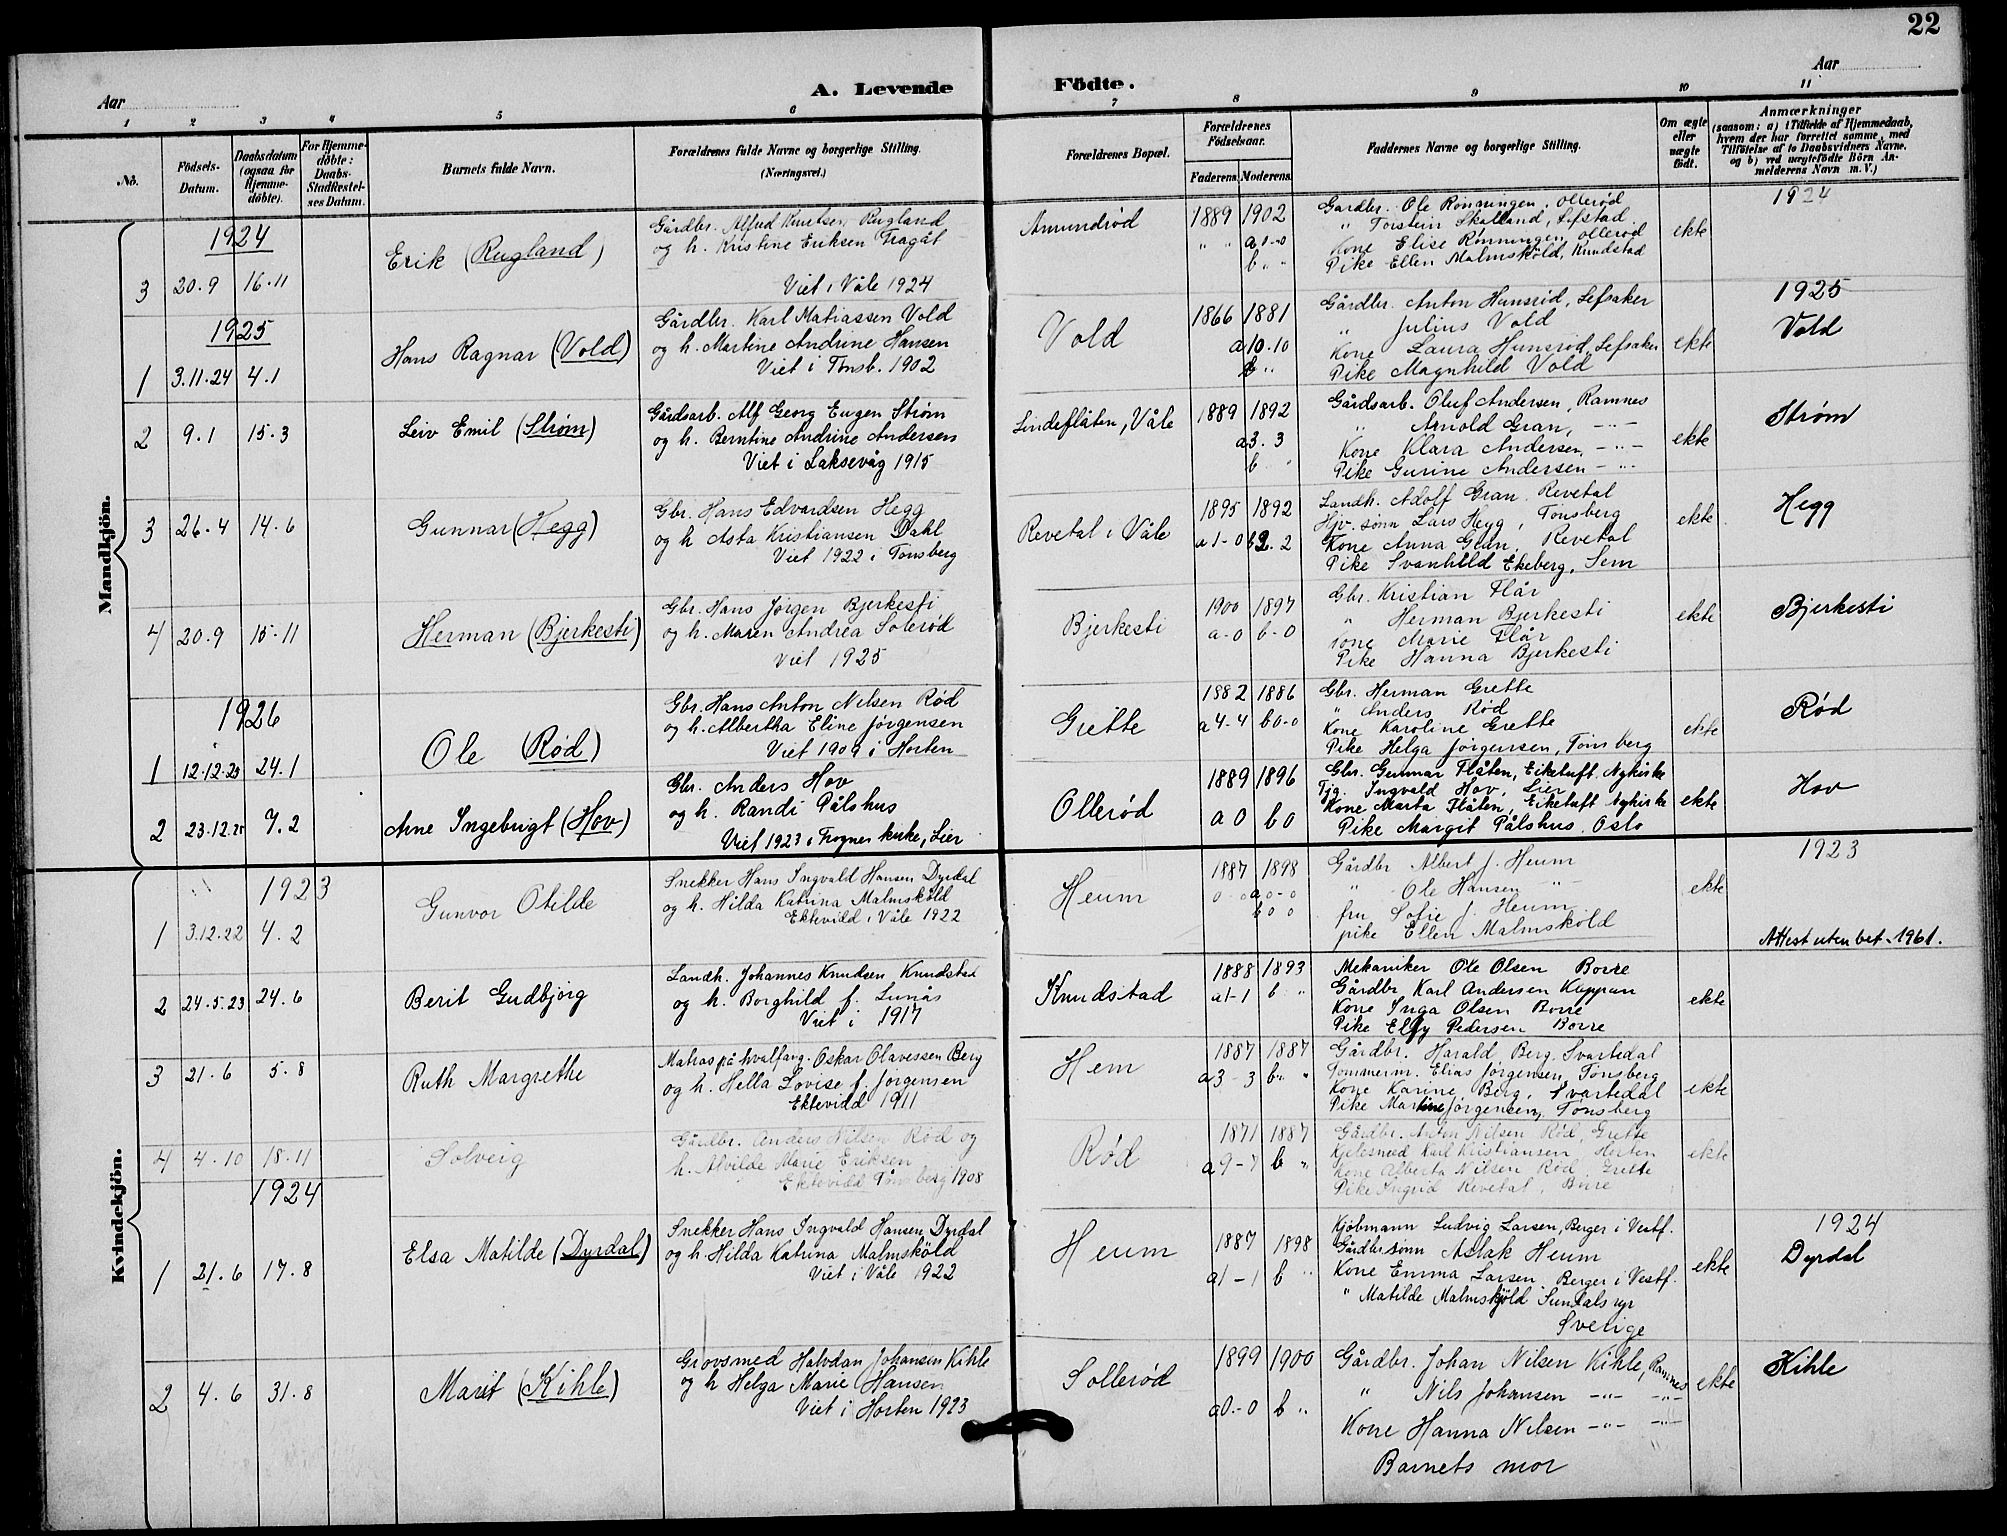 22
Aar
A. Levende Födte.
Aar
1 2 3 4 5 6 7 8 9 10 11
No.
Födsels-Datum.
Daabsdatum (ogsaa for Hjemme-döbte).
For Hjemme-döbte: Daabs-Stadfæstel-ses Datum.
Barnets fulde Navn.
Forældrenes fulde Navne og borgerlige Stilling.
(Næringsvei.)
Forældrenes Bopæl.
Forældrenes Födselsaar.
Faderens. Moderens.
Faddernes Navne og borgerlige Stilling.
Om ægte eller uægte födt.
Anmærkninger
(saasom: a) i Tilfælde af Hjemmedaab, hvem der har forrettet samme, med Tilföielse af to Daabsvidners Navne, og b) ved uægtefödte Börn An-melderens Navn m. V.)
Mandkjön.
1924
3 20.9 16.11
Erik (Rugland)
Gårdbr. Alfred Knutsen Rugland
og h. Kristine Eriksen Tragåt
Viet i Våle 1924
Amundrød
1889 1902
" " a 0-0
b " "
Gårdbr. Ole Rønningen, Ollerød
" Torstein Skalland, Lefstad
Kone Elise Rønningen, Ollerød
Pike Ellen Malmsköld, Knudstad
ekte
1924
1925
1 3.11.24 4.1
Hans Ragnar (Vold)
Gårdbr. Karl Matiassen Vold
og h. Martine Andrine Hansen
Viet i Tønsb. 1902
Vold
1866 1881
a 10.10
b "
Gårdbr. Anton Hunsrød, Lefsaker
" Julius Vold
Kone Laura Hunsrød, Lefsaker
Pike Magnhild Vold
ekte
1925
Vold
2 9.1 15.3
Leiv Emil (Strøm)
Gårdsarb. Alf Georg Eugen Strøm
og h. Berntine Andrine Andersen
Viet i Laksevåg 1915
Lindeflåten, Våle
1889 1892
a 3.3
b "
Gårdsarb. Oluf Andersen, Ramnes
" Arnold Gran, -"-
Kone Klara Andersen, -"-
Pike Gurine Andersen -"-
ekte
Strøm
3 26.4 14.6
Gunnar (Hegg)
Gbr. Hans Edvardsen Hegg
og h Asta Kristiansen Dahl
Viet 1922 i Tønsberg
Revetal i Våle
1895 1892
a 1-0 b 2.2
Landh. Adolf Gran Revetal
Hjv. sønn Lars Hegg, Tønsberg
Kone Anna Gran, Revetal
Pike Svanhild Ekeberg, Sem
ekte
Hegg
4 20.9 15.11
Herman (Bjerkesti)
Gbr. Hans Jørgen Bjerkesti
og h. Maren Andrea Solerød
Viet 1925
Bjerkesti
1900 1897
a-0 b-0
Gbr. Kristian Flår
" Herman Bjerkesti
Kone Marie Flår
Pike Hanna Bjerkesti
ekte
Bjerkesti
1926
1 12.12.25 24.1
Ole (Rød)
Gbr. Hans Anton Nilsen Rød
og h. Albertha Eline Jørgensen
Viet 1909 i Horten
Grette
1882 1886
a 4-4 b 0-0
Gbr. Herman Grette
" Anders Rød
Kone Karoline Grette
Pike Helga Jørgensen, Tønsberg
ekte
Rød
2 23.12.25 7.2
Arne Ingebrigt (Hov)
Gbr. Anders Hov
og h. Randi Pålshus
Viet 1923 i Frogner kirke, Lier
Ollerød
1889 1896
a 0 b 0
Gbr. Gunnar Flåten, Eiketuft, Nykirke
Tjg. Ingvald Hov, Lier
Kone Marta Flåten, Eiketuft Nykirke
Pike Margit Pålshus, Oslo
ekte
Hov
Kvindekjön.
1923
1 3.12.22 4.2
Gunvor Otilde
Snekker Hans Ingvald Hansen Dyrdal
og h. Hilda Katrina Malmsköld
Ektevidd i Våle 1922
Heum
1887 1898
a 0-0
b 0 0
Gårdbr Albert J. Heum
" Ole Hansen "
fru Sofie J. Heum
pike Ellen Malmsköld
ekte
1923
Attest uten bet. 1961.
2 24.5.23 24.6
Berit Gudbjørg
Landh. Johannes Knudsen Knudstad
og h. Borghild f. Lunås
Viet i 1917
Knudstad
1888 1893
a 1-1 b "
Mekaniker Ole Olsen Borre
Gårdbr Karl Andersen Kopperu
Kone Inga Olsen Borre
Pike Elly Pedersen Borre
ekte
3 21.6 5.8
Ruth Margrethe
Matros på hvalfang. Oskar Olavessen Berg
og h. Hella Lovise f. Jørgensen
Ektevidd 1911
Hem
1887 1887
a 3-3 b " "
Gårdbr. Harald Berg, Svartedal
Tømmerm. Elias Jørgensen, Tønsberg
Kone Karine Berg, Svartedal
Pike Martine Jørgensen, Tønsberg
ekte
4 4.10 18.11
Solveig
Gårdbr. Anders Nilsen Rød og
h. Alvilde Marie Eriksen
Ektevidd Tønsberg 1908
Rød
1871 1887
a 9-7 b "
Gårdbr. Anton Nilsen Rød, Grette
Kjelesmed Karl Kristiansen, Horten
Kone Alberta Nilsen Rød, Grette
Pike Ingrid Revetal, Borre
ekte
1924
1 21.6 17.8
Elsa Matilde (Dyrdal)
Snekker Hans Ingvald Hansen Dyrdal
og h. Hilda Katrina Malmsköld
Viet i Våle 1922
Heum
1887 1898
a 1-1 b "
Kjøbmann Ludvig Larsen, Berger i Vestf.
Gårdbr.sønn Aslak Heum
Kone Emma Larsen Berger i Vestf.
" Matilde Malmskjöld Sundals ryr
Sverige
ekte
1924
Dyrdal
2 4.6 31.8
Marit (Kihle)
Grovsmed Halvdan Johansen Kihle
og h Helga Marie Hansen
Viet i Horten 1923
Sollerød
1899 1900
a 0-0 b "
Gårdbr. Johan Nilsen Kihle, Ramnes
" Nils Johansen -"- -"-
Kone Hanna Nilsen -"- -"-
Barnets mor
ekte
Kihle